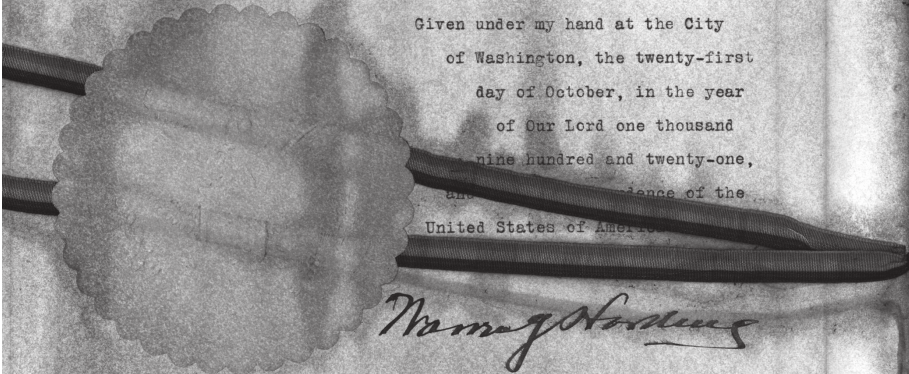 Given under my hand at the City
of Washington, the twenty-first
day of October, in the year
of Our Lord one thousand
nine hundred and twenty-one,
of the
United States of America
Warren G Harding